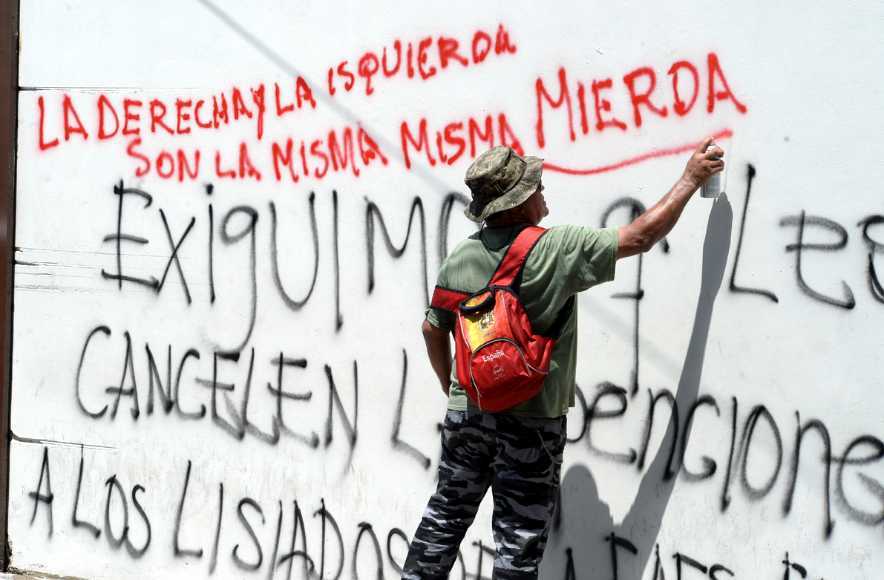 LA DERECHA Y LA ISQUIERDA
SON LA MISMA MISMA MIERDA
EXiGUiMOS q LES
CANCELEN LAS penciones
A LOS LISIADOS
España